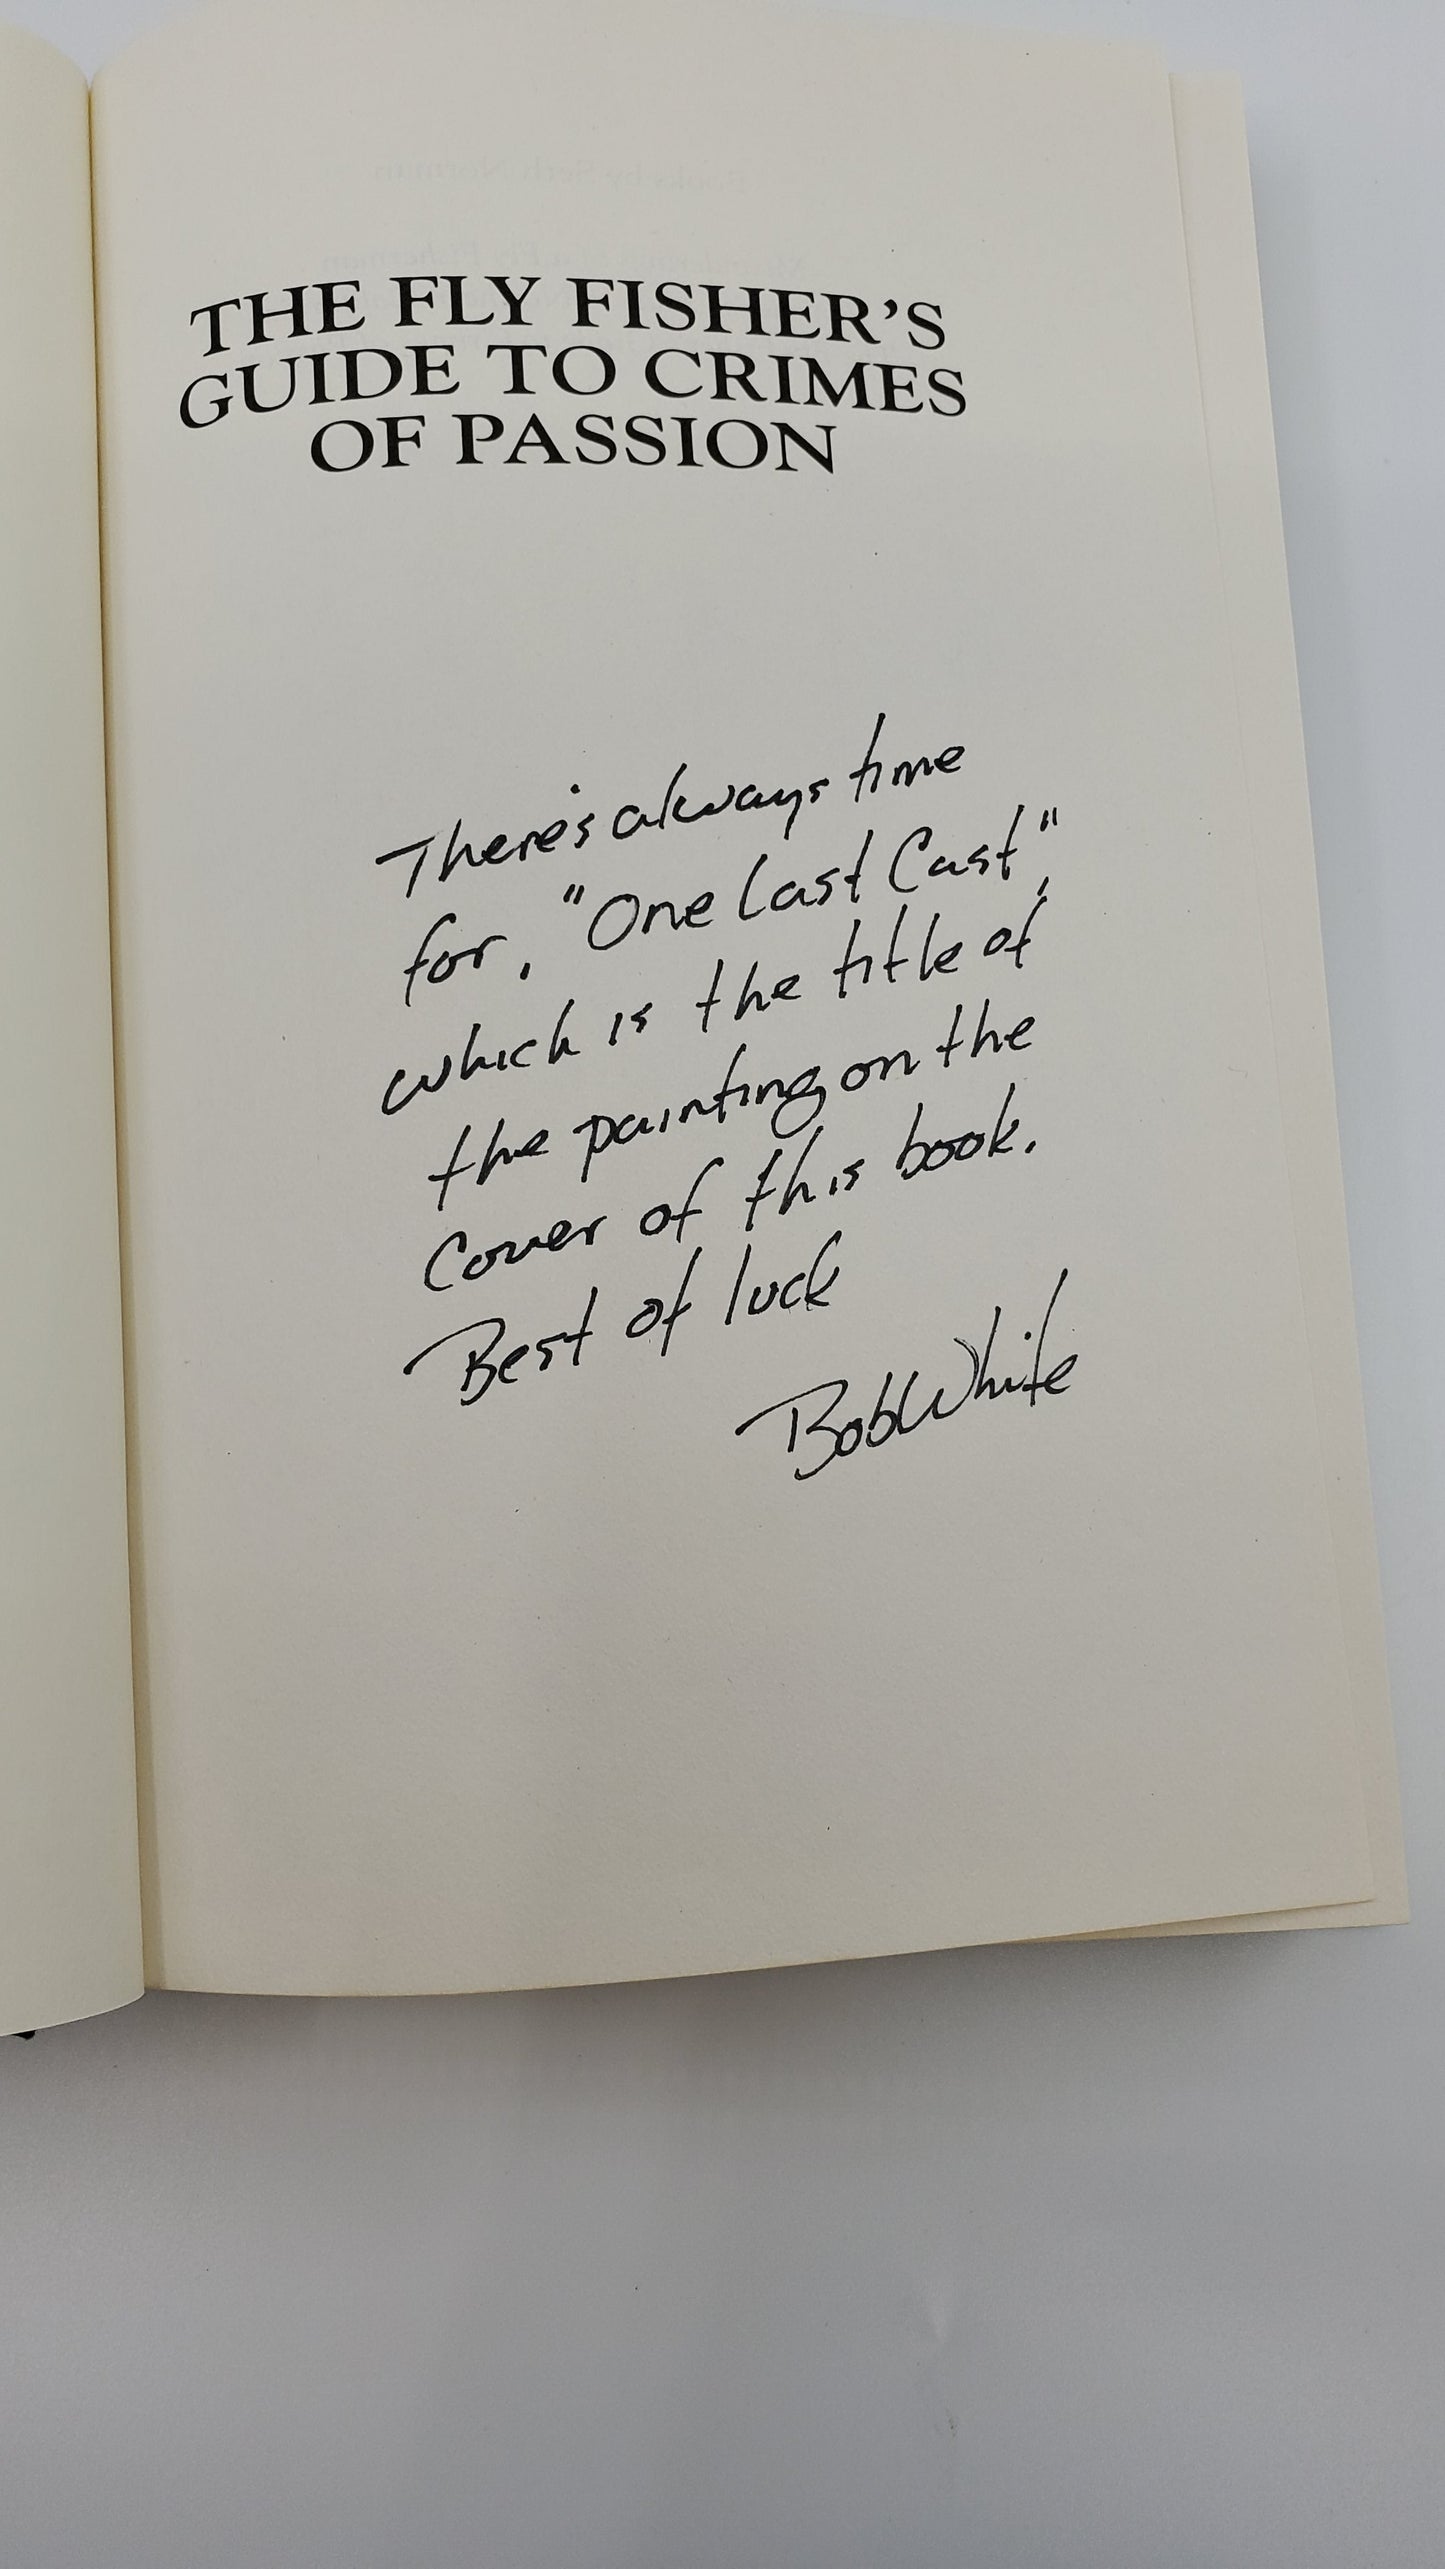 Books by Seth Norman
Meanderings of a Fly Fisherman
THE FLY FISHER'S
GUIDE TO CRIMES
OF PASSION
There's always time
for, "One Last Cast",
which is the title of
the painting on the
Cover of this book.
Best of luck
Bob White